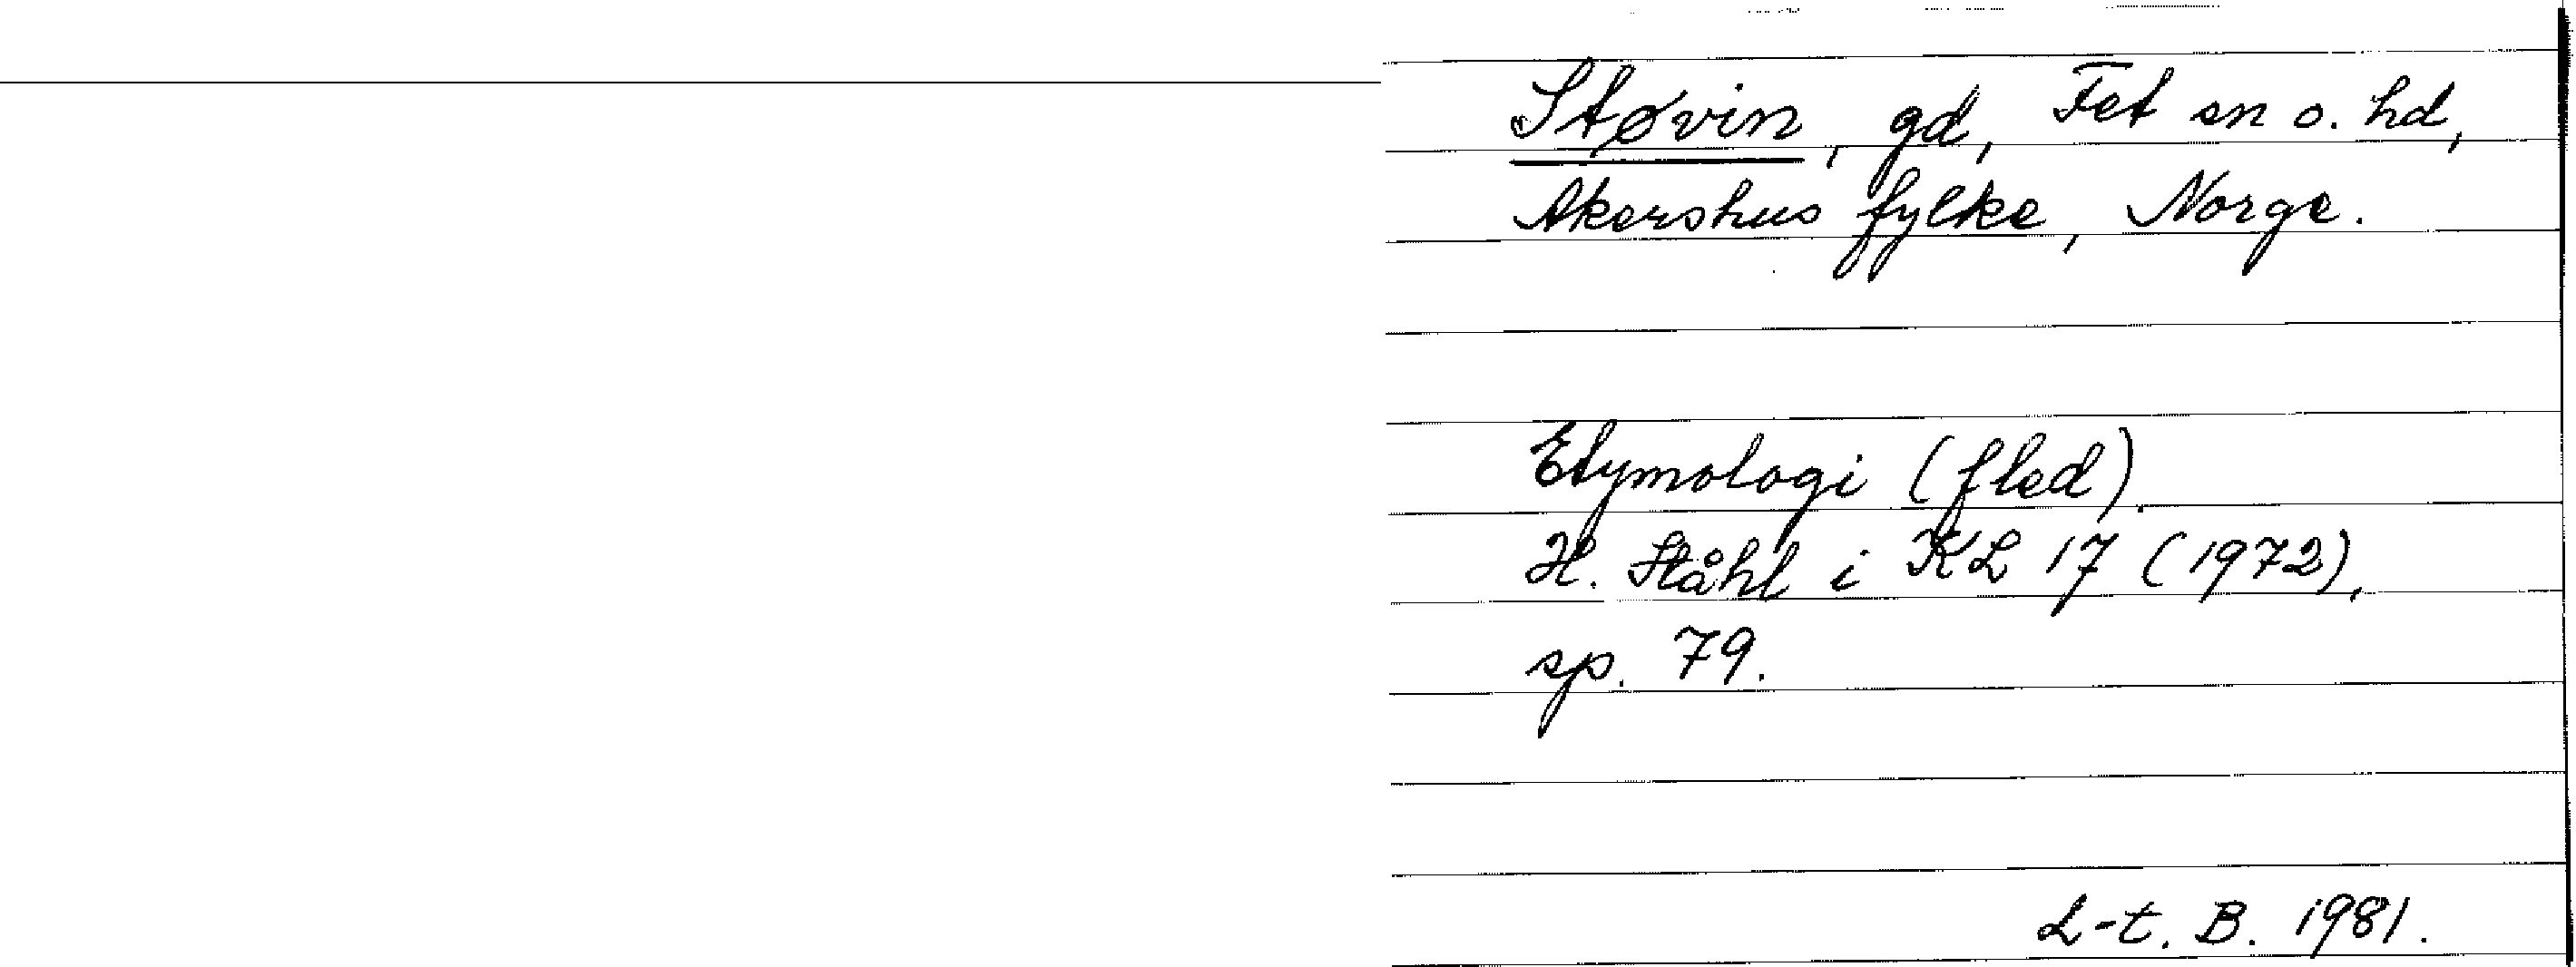 Støvin, gd, Fet sn o. hd,
Akershus fylke, Norge.
Etymologi (fled).
H. Ståhl i KL 17 (1972),
sp. 79.
L-t. B. 1981.